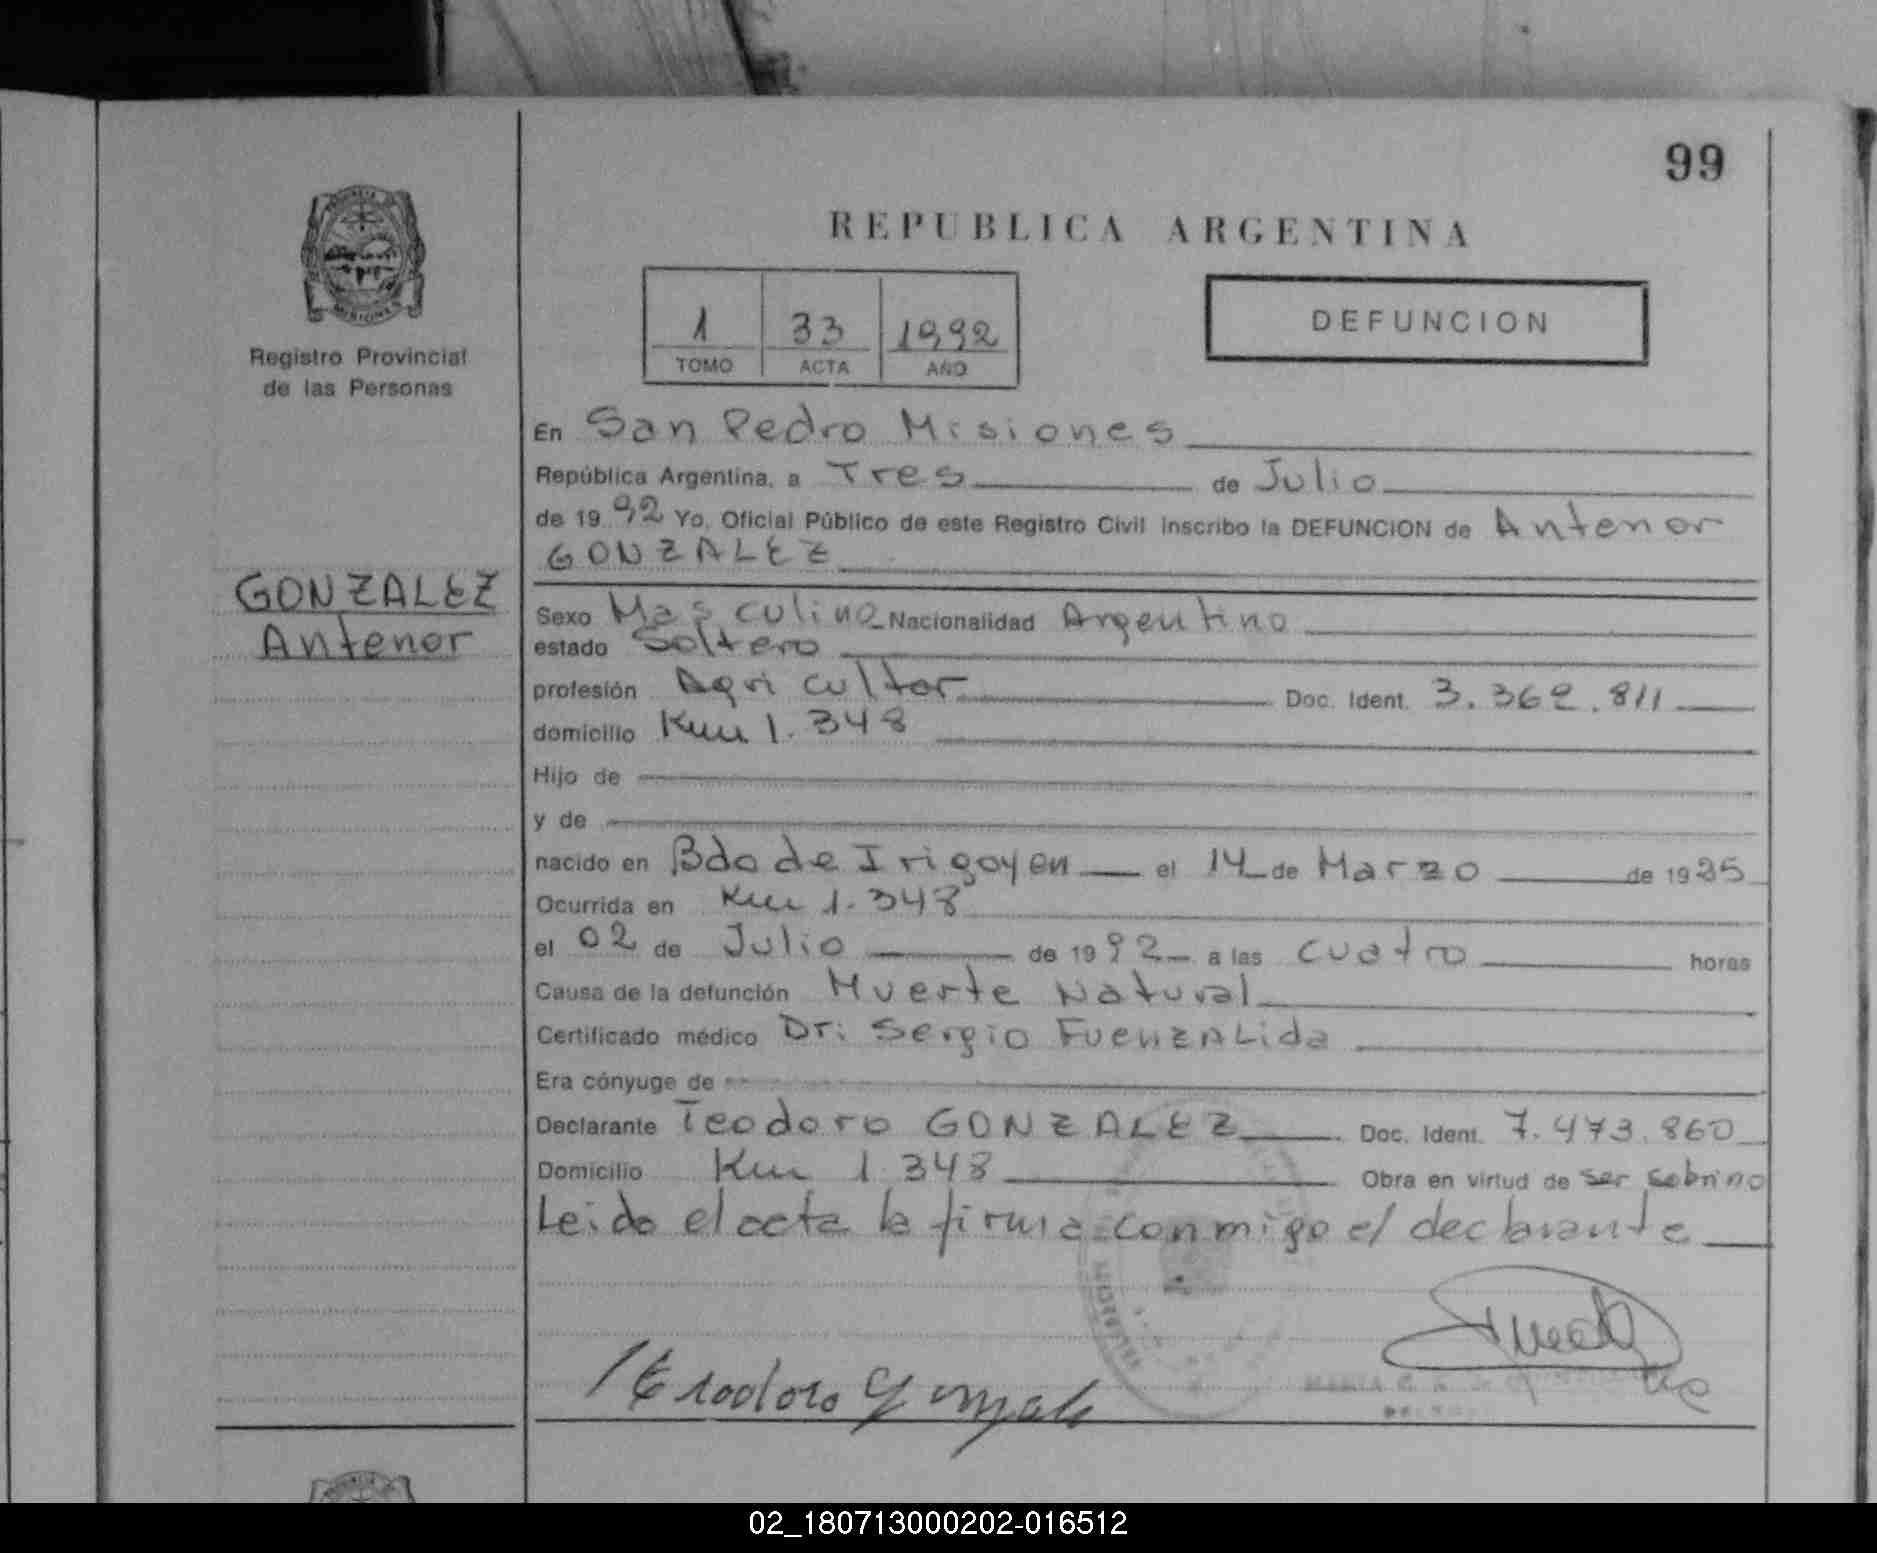 99
REPUBLICA ARGENTINA
Registro Provincial
de las Personas
1 33 1992
TOMO ACTA AÑO
DEFUNCION
En San Pedro Misiones
República Argentina, a Tres de Julio
de 19 92 Yo, Oficial Público de este Registro Civil inscribo la DEFUNCION de Antenor
GONZALEZ
GONZALEZ
Antenor
Sexo Masculino Nacionalidad Argentino
estado Soltero
profesión Agricultor Doc. Ident. 3.362.811
domicilio Km 1.348
Hijo de
y de
nacido en Bdo de Irigoyen el 14 de Marzo de 19
Ocurrida en Km 1.348
el 02 de Julio de 19 92 a las cuatro horas
Causa de la defunción Muerte Natural
Certificado médico Dr: Sergio FuenzALida
Era cónyuge de
Declarante Teodoro GONZALEZ Doc. Ident. 7.473.860
Domicilio Km 1.348 Obra en virtud de ser sobrino
Leido el acta la firma conmigo el declarante
Teodoro Gonzale
02_180713000202-016512